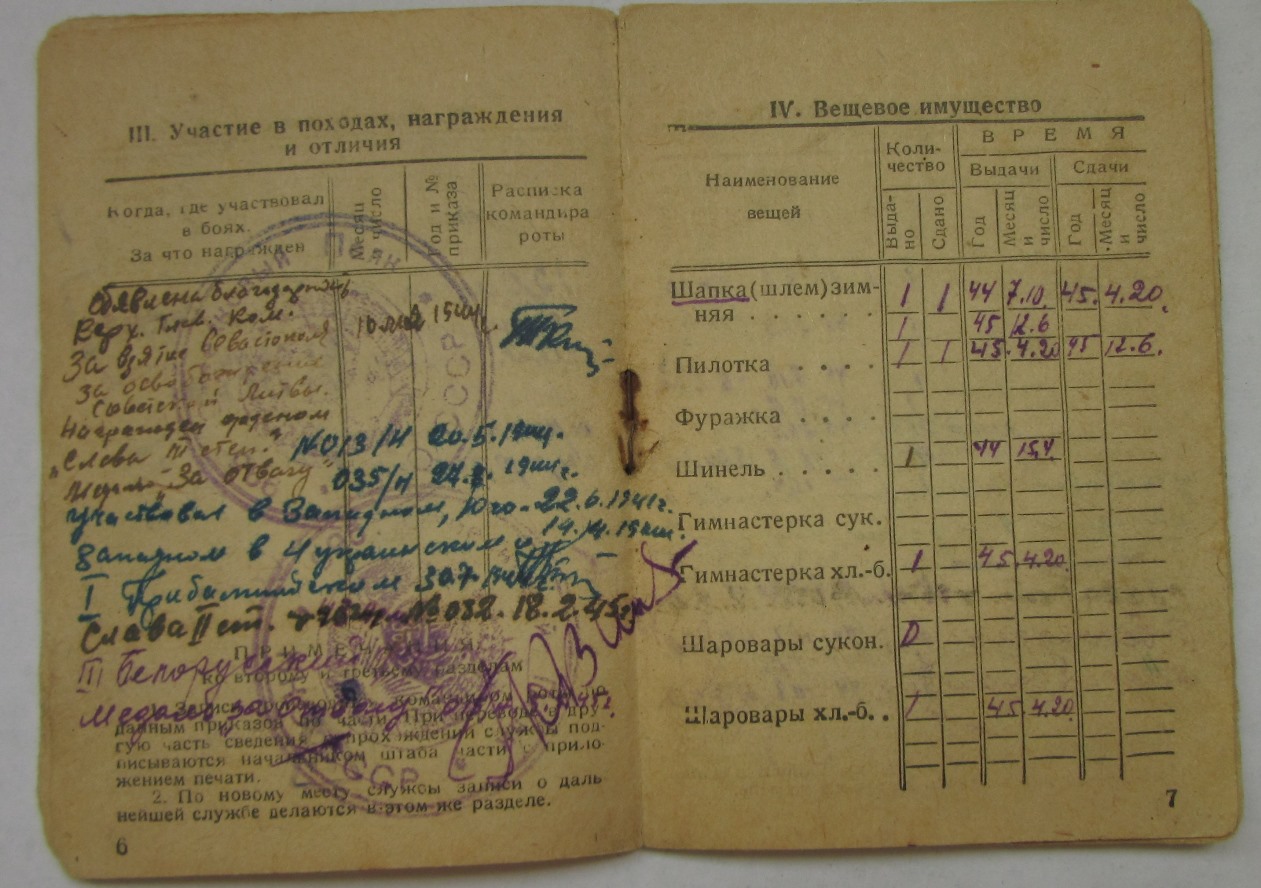 III. Участие в походах, награждения
и отличия
Когда, где участвовал
в боях.
За что награжден
Месяц
число
Год и №
приказа
Расписка
командира
роты
Объявлена благодарность
Верх. Глав. Ком.
За взятие Севастополя
10 мая 1944г.
За освобождение
Советской Литвы.
Награжден орденом
"Слава III степ." №013/н 20.5.1944г.
Медаль "За отвагу" 035/н 1944г.
участвовал в Западном, Юго- 22.6.1941г.
западном в 4 украинском и 14.4.1944г.
I Прибалтийском 30.7.
Слава II ст. №032. 18.2.45г.
III Белорусском
Медаль за отвагу
ПРИМЕЧАНИЯ
ко второму и третьему разделам
командиром роты по
данным приказов по части. При переводе в дру-
гую часть сведения о прохождении службы под-
писываются начальником штаба части с прило-
жением печати.
2. По новому месту службы записи о даль
нейшей службе делаются в этом же разделе.
СССР
СССР
6
IV. Вещевое имущество
Наименование
вещей
Коли-
чество
ВРЕМЯ
Выдачи
Сдачи
Выда-
но
Сдано
Год
Месяц
и
число
Год
Месяц
и
число
Шапка (шлем) зим- 1 1 44 7.10. 45. 4.20.
няя . . . . . . 1 45 12.6
Пилотка . . . . 1 1 45. 4.20 45 12.6.
Фуражка . . . .
Шинель . . . . . 1 44 15.4.
Гимнастерка сук.
Гимнастерка хл.-б. 1 45. 4.20.
Шаровары сукон.
Шаровары хл.-б. . 1 45. 4.20.
7